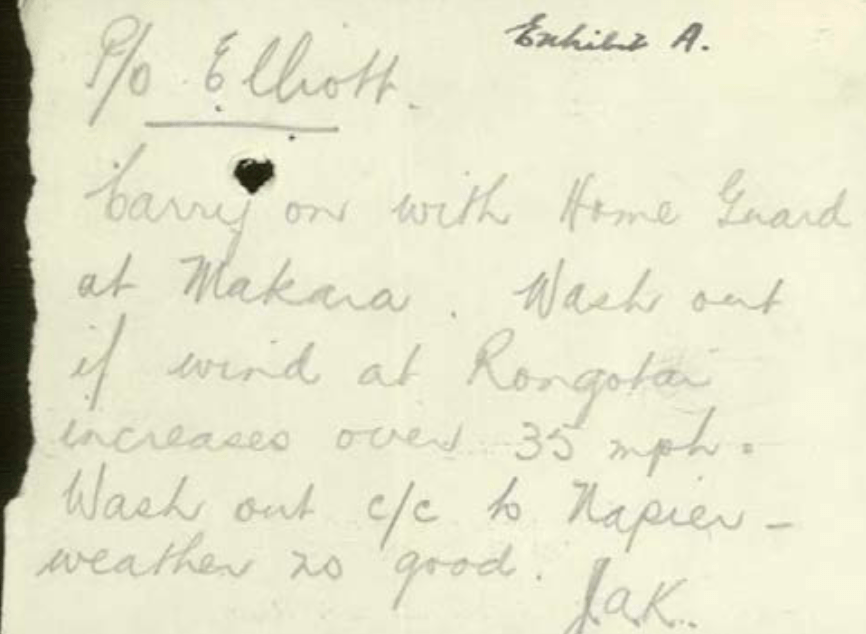 Exhibit A.
P/o Elliott.
Carry on with Home Guard
at Makara. Wash out
if wind at Rongotai
increases over 35 mph.
Wash out c/c to Napier -
weather no good.
J.A.K.